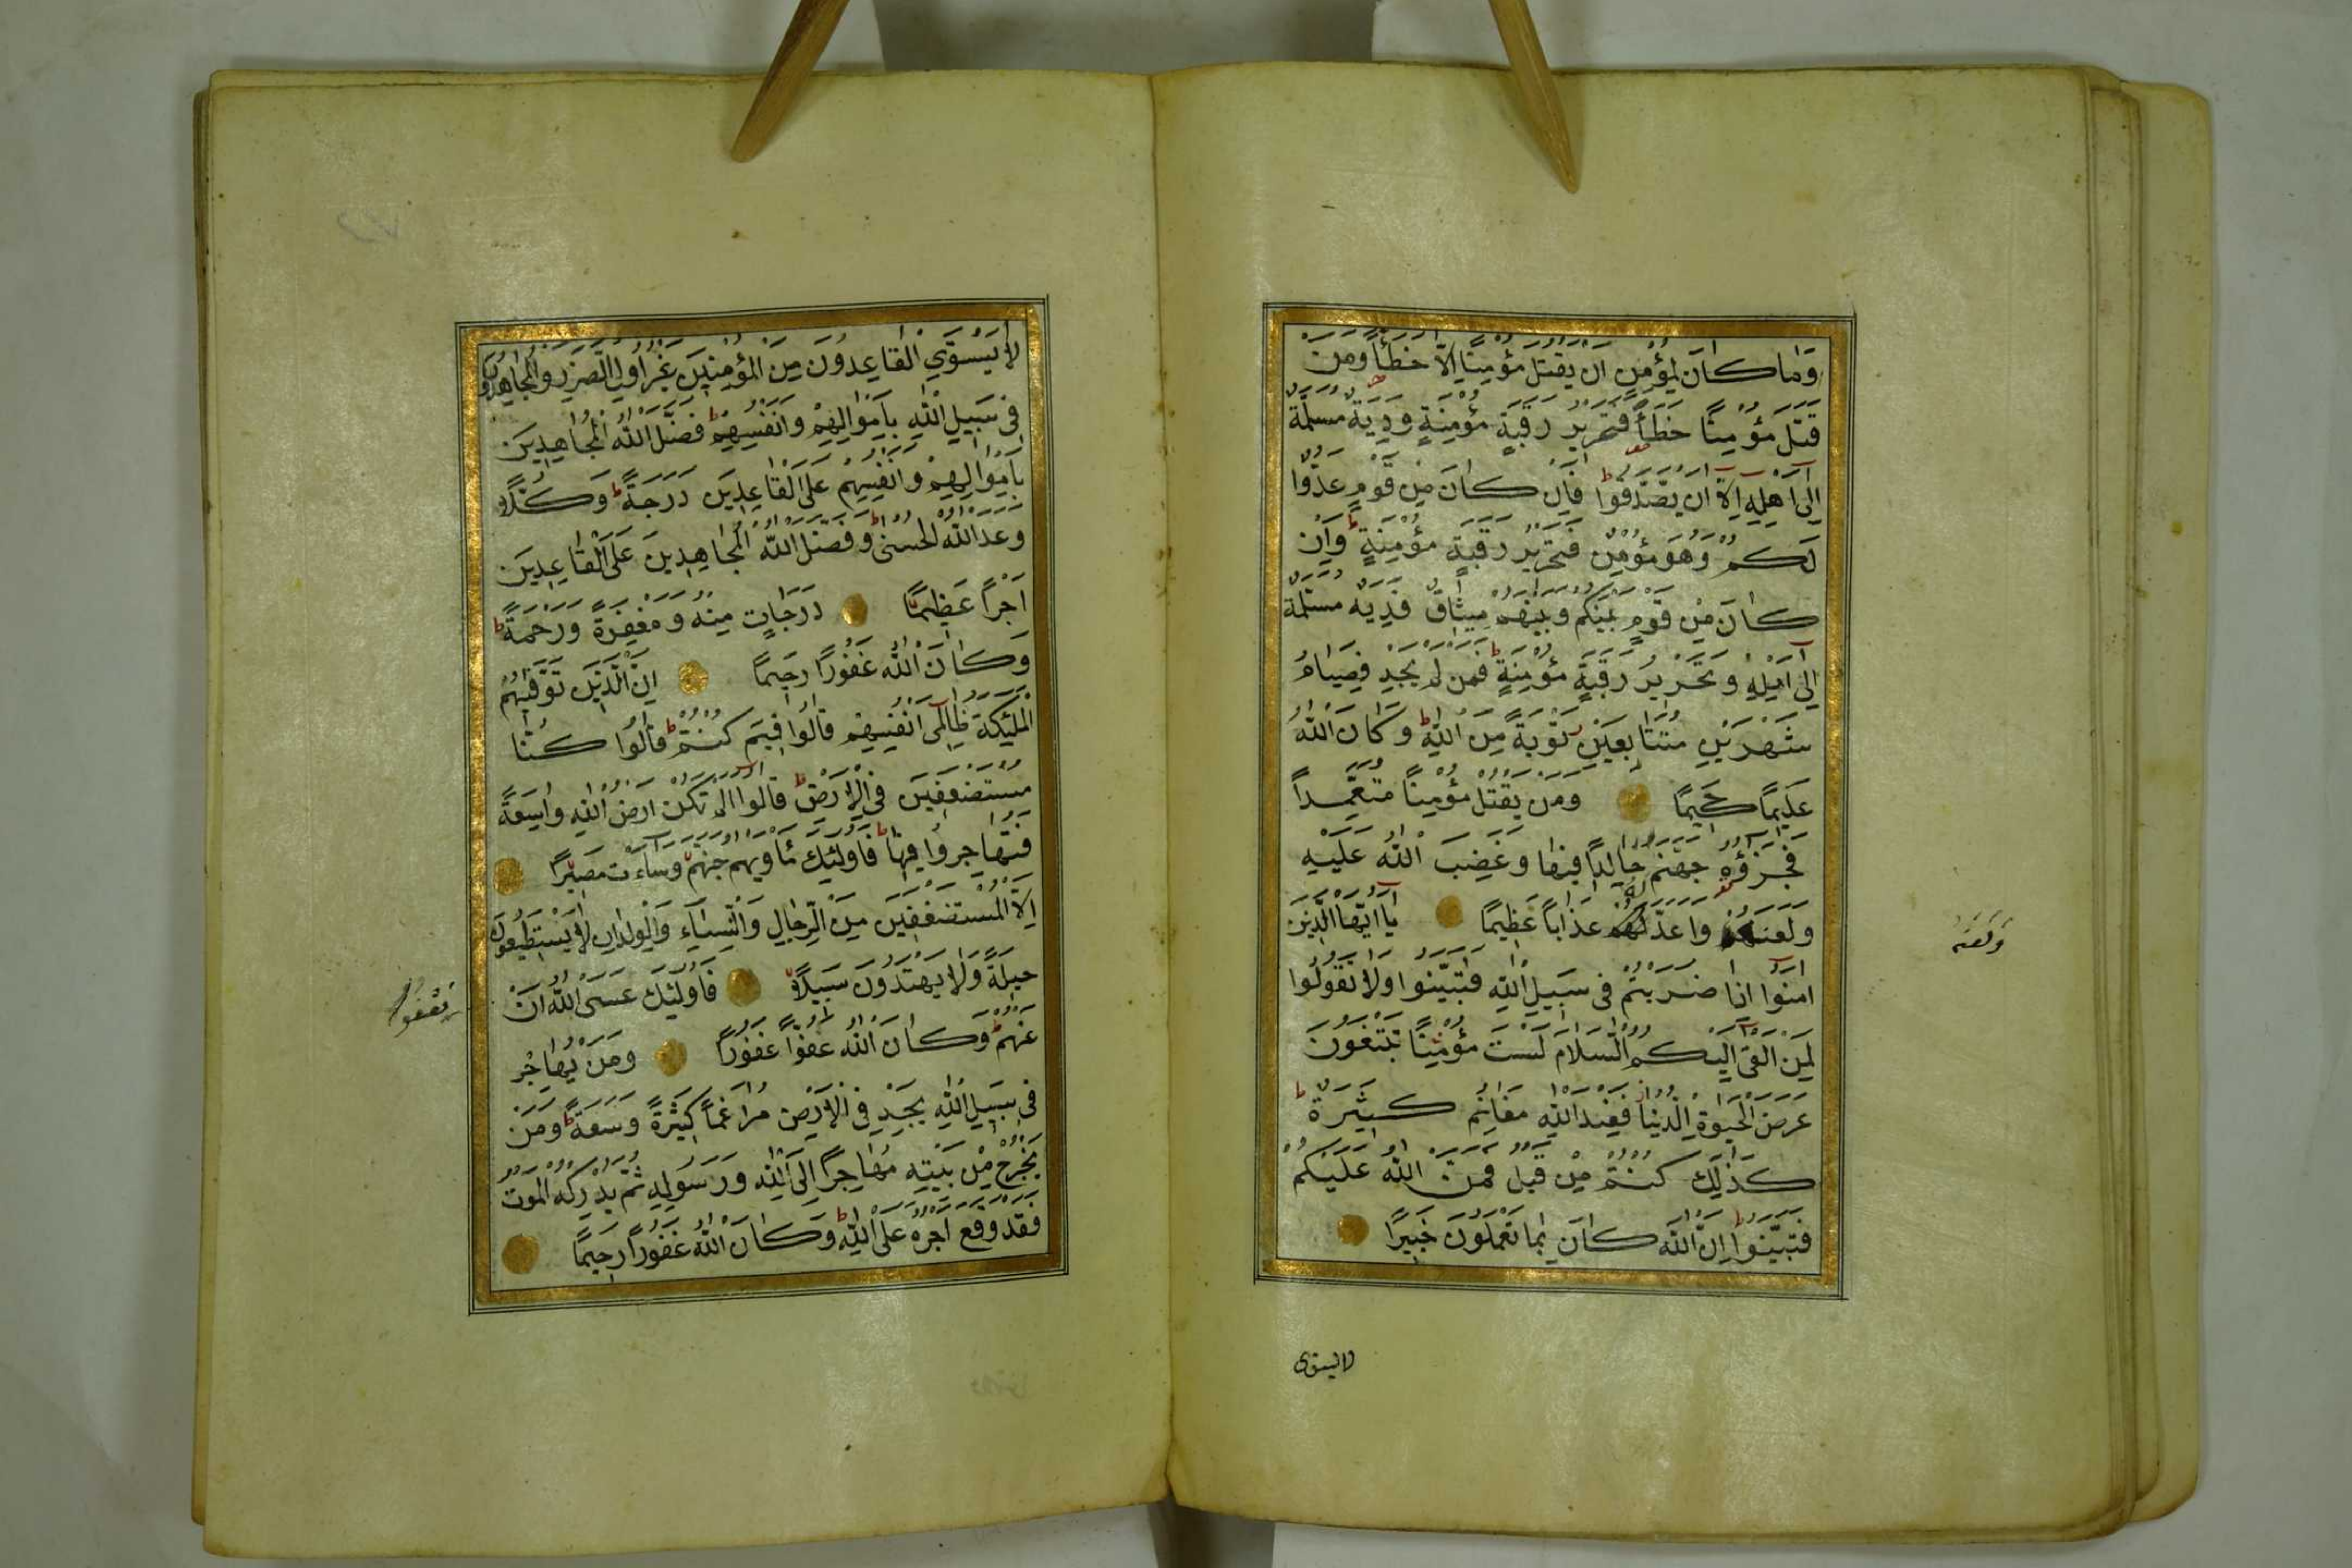 وَمَا كَانَ لِمُؤْمِنٍ اَنْ يَقْتُلَ مُؤْمِنًا اِلَّا خَطَأً وَمَنْ
قَتَلَ مُؤْمِنًا خَطَأً فَتَحْرِيرُ رَقَبَةٍ مُؤْمِنَةٍ وَدِيَةٌ مُسَلَّمَةٌ
اِلٰى اَهْلِهِ اِلَّا اَنْ يَصَّدَّقُوا فَاِنْ كَانَ مِنْ قَوْمٍ عَدُوٍّ
لَكُمْ وَهُوَ مُؤْمِنٌ فَتَحْرِيرُ رَقَبَةٍ مُؤْمِنَةٍ وَاِنْ
كَانَ مِنْ قَوْمٍ بَيْنَكُمْ وَبَيْنَهُمْ مِيثَاقٌ فَدِيَةٌ مُسَلَّمَةٌ
اِلٰى اَهْلِهِ وَتَحْرِيرُ رَقَبَةٍ مُؤْمِنَةٍ فَمَنْ لَمْ يَجِدْ فَصِيَامُ
شَهْرَيْنِ مُتَتَابِعَيْنِ تَوْبَةً مِنَ اللّٰهِ وَكَانَ اللّٰهُ
عَلِيمًا حَكِيمًا وَمَنْ يَقْتُلْ مُؤْمِنًا مُتَعَمِّداً
فَجَزَٓاؤُهُ جَهَنَّمُ خَالِداً فِيهَا وَغَضِبَ اللّٰهُ عَلَيْهِ
وَلَعَنَهُ وَاَعَدَّ لَهُ عَذَاباً عَظِيمًا يَٓا اَيُّهَا الَّذِينَ
اٰمَنُوا اِذَا ضَرَبْتُمْ فِى سَبِيلِ اللّٰهِ فَتَبَيَّنُوا وَلَا تَقُولُوا
لِمَنْ اَلْقٰى اِلَيْكُمُ السَّلَامَ لَسْتَ مُؤْمِنًا تَبْتَغُونَ
عَرَضَ الْحَيٰوةِ الدُّنْيَا فَعِنْدَ اللّٰهِ مَغَانِمُ كَثِيرَةٌ
كَذٰلِكَ كُنْتُمْ مِنْ قَبْلُ فَمَنَّ اللّٰهُ عَلَيْكُمْ
فَتَبَيَّنُوا اِنَّ اللّٰهَ كَانَ بِمَا تَعْمَلُونَ خَبِيرًا
وَلَعَنَهُ
لا يستوى
لَا يَسْتَوِي الْقَاعِدُونَ مِنَ الْمُؤْمِنِينَ غَيْرُ اُولِى الضَّرَرِ وَالْمُجَاهِدُونَ
فِى سَبِيلِ اللّٰهِ بِاَمْوَالِهِمْ وَاَنْفُسِهِمْ فَضَّلَ اللّٰهُ الْمُجَاهِدِينَ
بِاَمْوَالِهِمْ وَاَنْفُسِهِمْ عَلَى الْقَاعِدِينَ دَرَجَةً وَكُلًّا
وَعَدَ اللّٰهُ الْحُسْنٰى وَفَضَّلَ اللّٰهُ الْمُجَاهِدِينَ عَلَى الْقَاعِدِينَ
اَجْرًا عَظِيمًا دَرَجَاتٍ مِنْهُ وَمَغْفِرَةً وَرَحْمَةً
وَكَانَ اللّٰهُ غَفُورًا رَحِيمًا اِنَّ الَّذِينَ تَوَفّٰيهُمُ
الْمَلٰٓئِكَةُ ظَالِمِٓى اَنْفُسِهِمْ قَالُوا فِيمَ كُنْتُمْ قَالُوا كُنَّا
مُسْتَضْعَفِينَ فِى الْاَرْضِ قَالُوا اَلَمْ تَكُنْ اَرْضُ اللّٰهِ وَاسِعَةً
فَتُهَاجِرُوا فِيهَا فَاُولٰٓئِكَ مَأْوٰيهُمْ جَهَنَّمُ وَسَٓاءَتْ مَصِيرًا
اِلَّا الْمُسْتَضْعَفِينَ مِنَ الرِّجَالِ وَالنِّسَٓاءِ وَالْوِلْدَانِ لَا يَسْتَطِيعُونَ
حِيلَةً وَلَا يَهْتَدُونَ سَبِيلًا فَاُولٰٓئِكَ عَسَى اللّٰهُ اَنْ
عَنْهُمْ وَكَانَ اللّٰهُ عَفُوًّا غَفُورًا وَمَنْ يُهَاجِرْ
فِى سَبِيلِ اللّٰهِ يَجِدْ فِى الْاَرْضِ مُرَاغَمًا كَثِيرَةً وَسَعَةً وَمَنْ
يَخْرُجْ مِنْ بَيْتِهِ مُهَاجِرًا اِلَى اللّٰهِ وَرَسُولِهِ ثُمَّ يُدْرِكْهُ الْمَوْتُ
فَقَدْ وَقَعَ اَجْرُهُ عَلَى اللّٰهِ وَكَانَ اللّٰهُ غَفُورًا رَحِيمًا
يَعْفُوَ